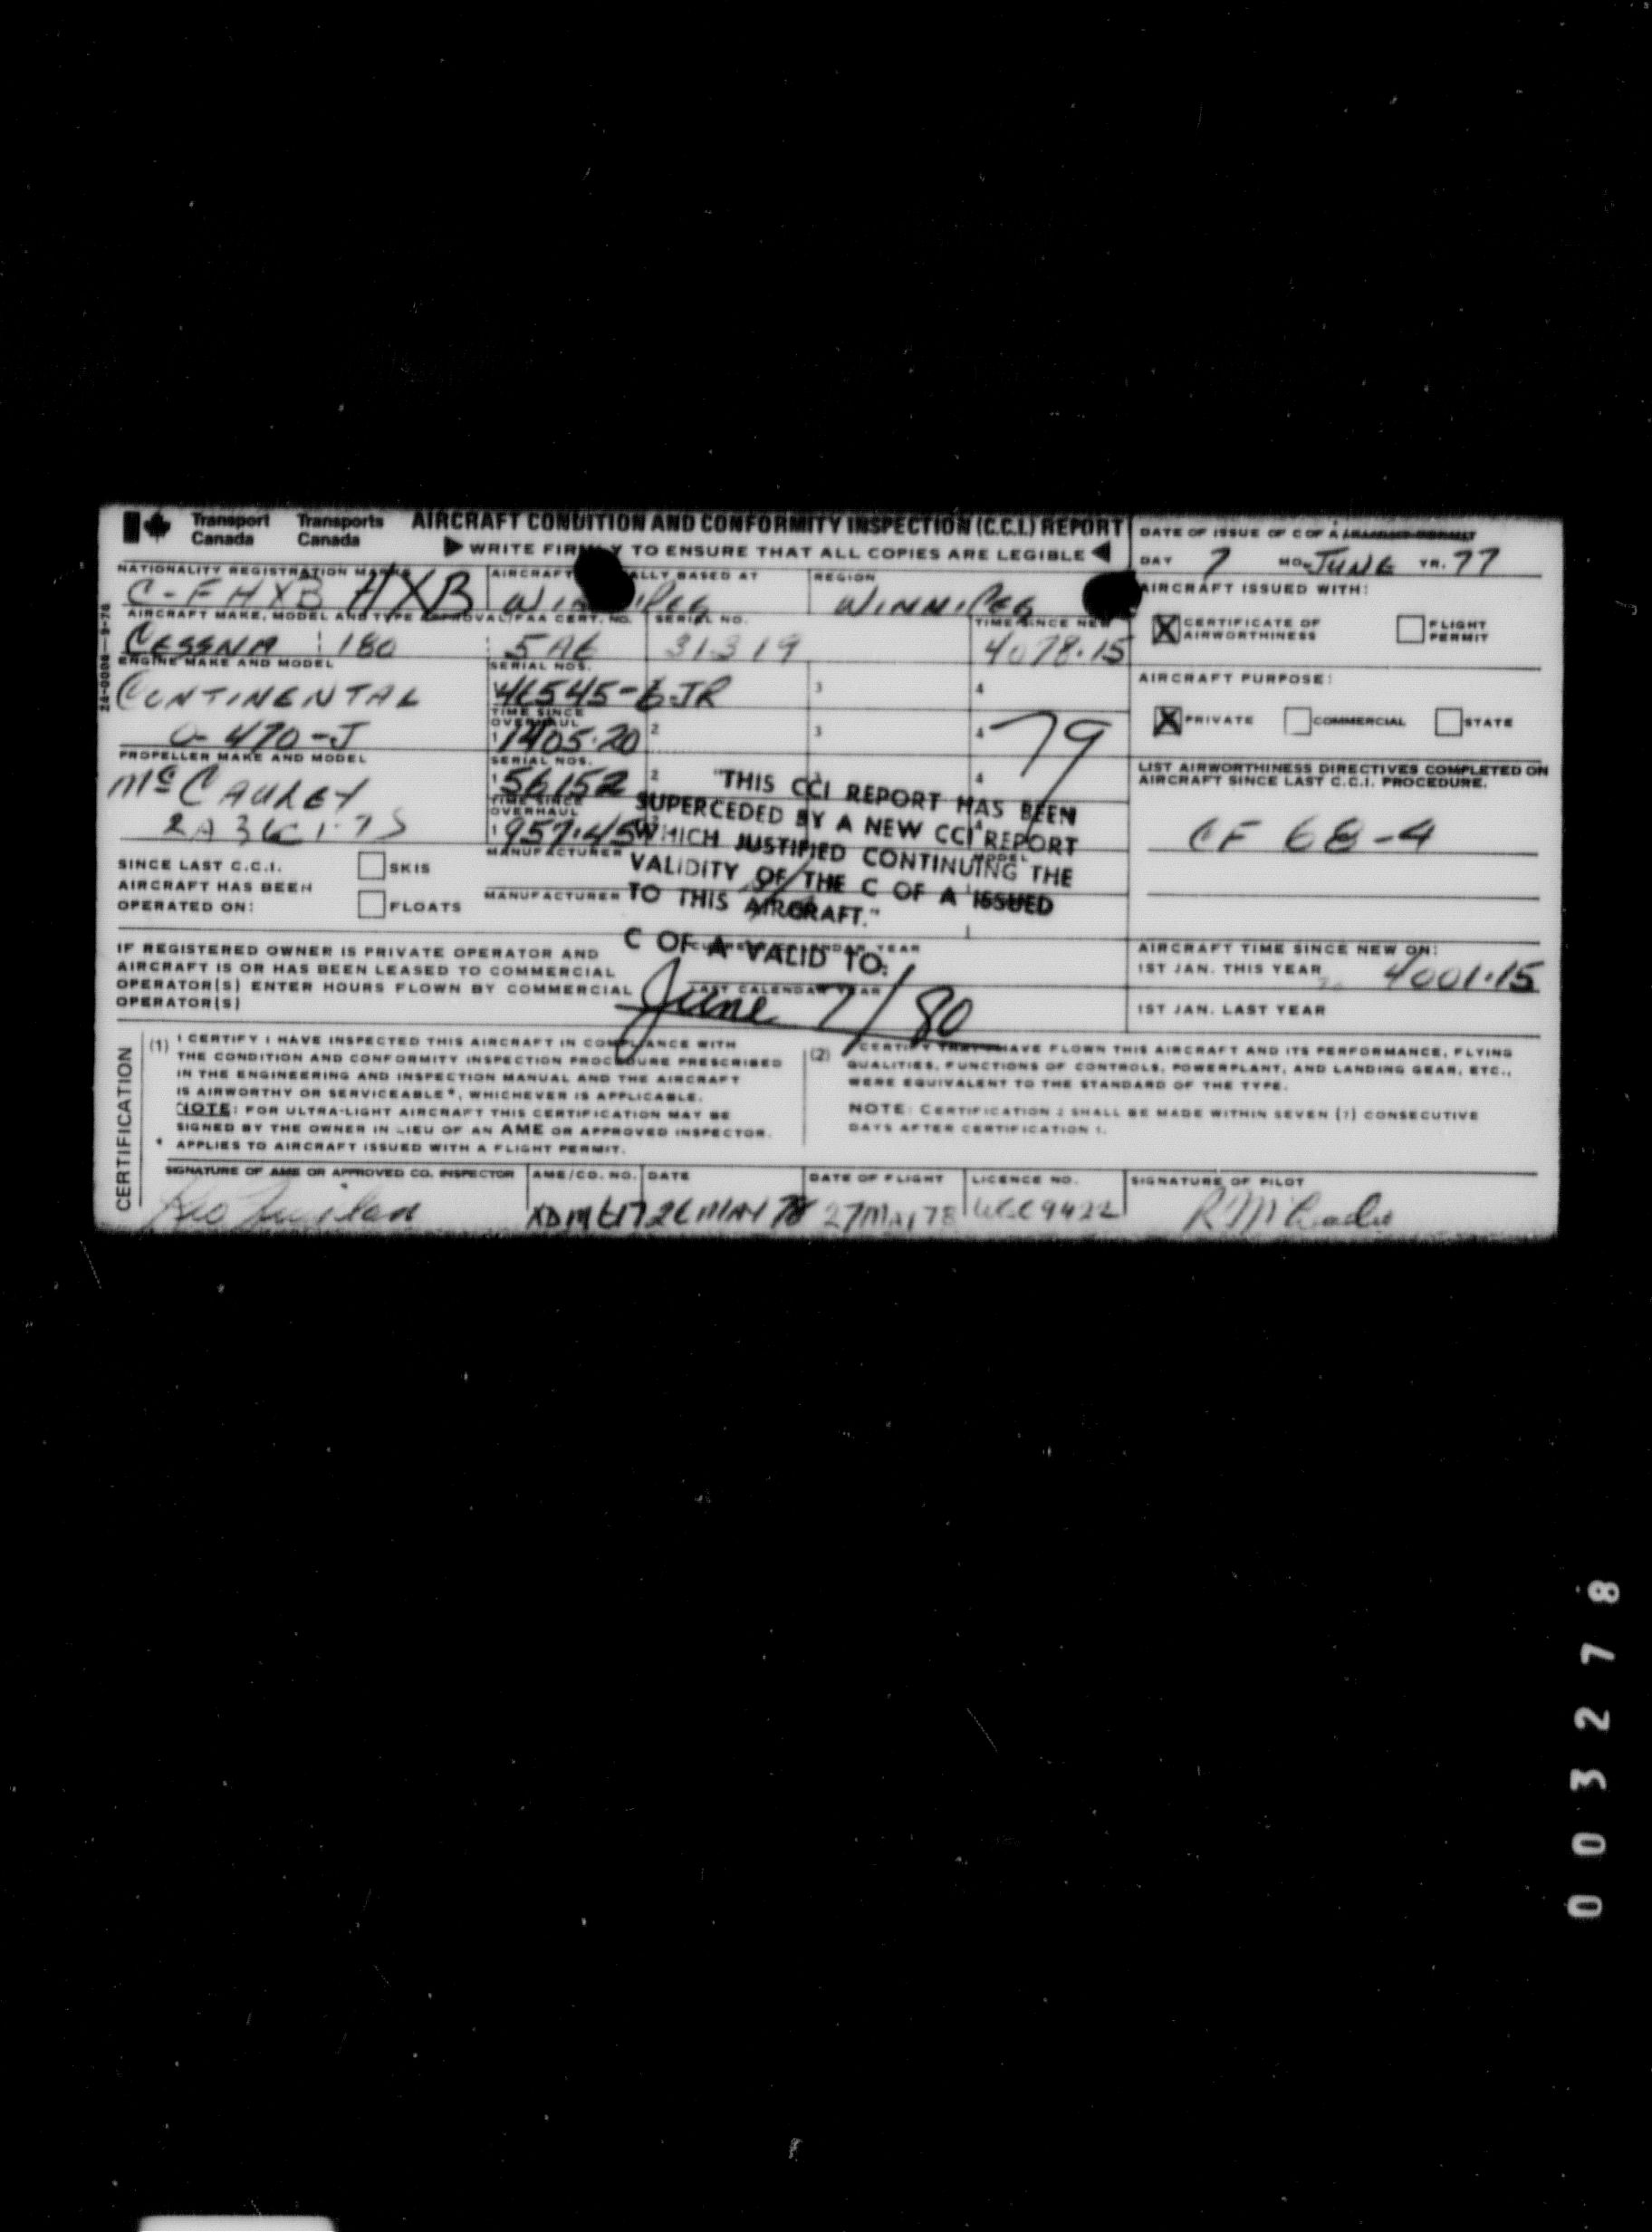 Transport Canada Transports Canada
AIRCRAFT CONDITION AND CONFORMITY INSPECTION (C.C.I.) REPORT
WRITE FIRMLY TO ENSURE THAT ALL COPIES ARE LEGIBLE
DATE OF ISSUE OF C OF A
DAY 7 MO. JUNE YR. 77
NATIONALITY REGISTRATION MARKS
C-FHXB HXB
AIRCRAFT NORMALLY BASED AT
WINNIPEG
REGION
WINNIPEG
AIRCRAFT MAKE, MODEL AND TYPE APPROVAL/FAA CERT. NO.
CESSNA 180 5A6
SERIAL NO.
31319
TIME SINCE NEW
4078.15
ENGINE MAKE AND MODEL
CONTINENTAL
O-470-J
SERIAL NOS.
3 4
TIME SINCE OVERHAUL
1 1405.20 2 3 4
79
PROPELLER MAKE AND MODEL
McCAULEY
SERIAL NOS.
1 56152 2 4
TIME SINCE OVERHAUL
1 957.45
MANUFACTURER
MANUFACTURER
SINCE LAST C.C.I.
AIRCRAFT HAS BEEN
OPERATED ON:
SKIS
FLOATS
"THIS CCI REPORT HAS BEEN
SUPERCEDED BY A NEW CCI REPORT
WHICH JUSTIFIED CONTINUING THE
VALIDITY OF THE C OF A ISSUED
TO THIS AIRCRAFT."
C OF A VALID TO:
June 7/80
IF REGISTERED OWNER IS PRIVATE OPERATOR AND
AIRCRAFT IS OR HAS BEEN LEASED TO COMMERCIAL
OPERATOR(S) ENTER HOURS FLOWN BY COMMERCIAL
OPERATOR(S)
CALENDAR YEAR
LAST CALENDAR YEAR
AIRCRAFT ISSUED WITH:
X CERTIFICATE OF AIRWORTHINESS
FLIGHT PERMIT
AIRCRAFT PURPOSE:
X PRIVATE COMMERCIAL STATE
LIST AIRWORTHINESS DIRECTIVES COMPLETED ON
AIRCRAFT SINCE LAST C.C.I. PROCEDURE.
CF 68-4
AIRCRAFT TIME SINCE NEW ON:
1ST JAN. THIS YEAR 4001.15
1ST JAN. LAST YEAR
CERTIFICATION
(1) I CERTIFY I HAVE INSPECTED THIS AIRCRAFT IN COMPLIANCE WITH
THE CONDITION AND CONFORMITY INSPECTION PROCEDURE PRESCRIBED
IN THE ENGINEERING AND INSPECTION MANUAL AND THE AIRCRAFT
IS AIRWORTHY OR SERVICEABLE*, WHICHEVER IS APPLICABLE.
NOTE: FOR ULTRA-LIGHT AIRCRAFT THIS CERTIFICATION MAY BE
SIGNED BY THE OWNER IN LIEU OF AN AME OR APPROVED INSPECTOR.
* APPLIES TO AIRCRAFT ISSUED WITH A FLIGHT PERMIT.
(2) I CERTIFY THAT I HAVE FLOWN THIS AIRCRAFT AND ITS PERFORMANCE, FLYING
QUALITIES, FUNCTIONS OF CONTROLS, POWERPLANT, AND LANDING GEAR, ETC.,
WERE EQUIVALENT TO THE STANDARD OF THE TYPE.
NOTE: CERTIFICATION 2 SHALL BE MADE WITHIN SEVEN (7) CONSECUTIVE
DAYS AFTER CERTIFICATION 1.
SIGNATURE OF AME OR APPROVED CO. INSPECTOR
AME/CO. NO.
DATE
26 MAY 78
DATE OF FLIGHT
27 MAY 78
LICENCE NO.
SIGNATURE OF PILOT
003278